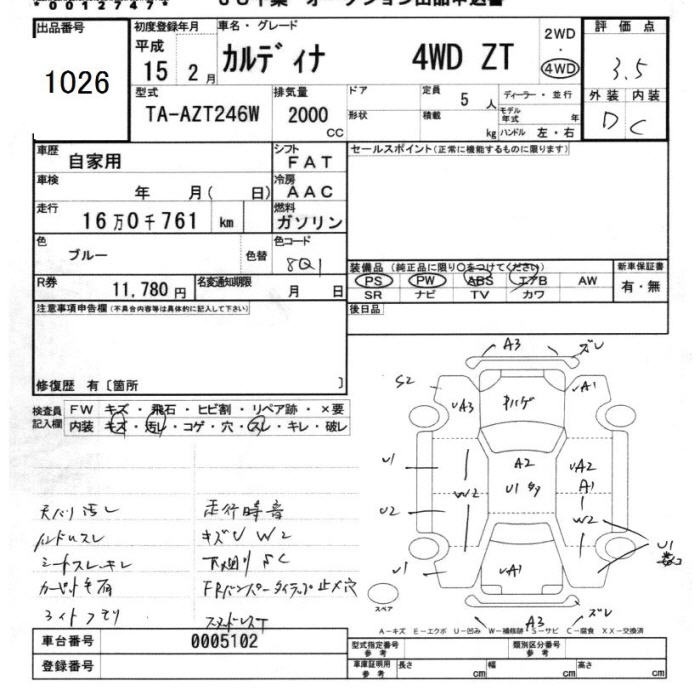 *00127477*
出品番号
1026
初度登録年月
平成
15 2月
車名・グレード
カルディナ 4WD ZT
2WD
・
4WD
評価点
3.5
外装 内装
D C
型式
TA-AZT246W
排気量
2000
CC
ドア
形状
定員
5 人
積載
kg
ディーラー・並行
モデル年式 年
ハンドル 左・右
車歴
自家用
シフト
FAT
車検
年 月( 日)
冷房
AAC
走行
16万0千761 km
燃料
ガソリン
色
ブルー
色替
色コード
8Q1
R券
11,780円
名変通知期限
月 日
セールスポイント(正常に機能するものに限ります)
装備品(純正品に限り○をつけてください)
PS PW ABS エアB AW
SR ナビ TV カワ
新車保証書
有・無
後日品
注意事項申告欄(不具合内容等は具体的に記入して下さい)
修復歴 有〔箇所 〕
検査員記入欄
FW キズ・飛石・ヒビ割・リペア跡・×要
内装 キズ・汚レ・コゲ・穴・スレ・キレ・破レ
天バリ汚レ
ハンドルスレ
シートスレキレ
ライトクモリ
走行時音
キズU W2
下廻りSC
FRバンパータイラップ止メ穴
A3
ズレ
S2
UA3
ハゲ
UA1
U1
A2
U1
UA2
A1
W2
W2
U2
U1
UA1
U1
A3
ズレ
スペア
A-キズ E-エクボ U-凹み W-補修跡 S-サビ C-腐食 XX-交換済
車台番号
0005102
登録番号
型式指定番号
参考
類別区分番号
参考
車庫証明用
参考
長さ cm
幅 cm
高さ cm